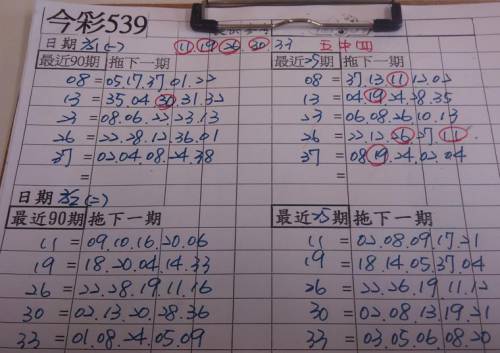 今彩539
日期 2/1(一) 11 19 26 30 33 五中四
最近90期 拖下一期 最近25期 拖下一期
08=05.17.37.01.22 08=37.13.11.12.02
13=35.04.30.31.32 13=04.19.24.28.35
23=08.06.22.23.13 23=06.08.26.10.13
26=22.28.12.36.01 26=22.12.26.27.11.
37=02.04.08.24.38 37=08.19.24.02.04
= =
日期 2/2(二)
最近90期 拖下一期 最近25期 拖下一期
11=09.10.16.20.06 11=02.08.09.17.21
19=18.20.04.14.33 19=18.14.05.37.04
26=22.28.19.11.16 26=22.26.19.11.12
30=02.13.20.28.36 30=02.08.13.19.21
33=01.08.24.05.09 33=03.05.06.08.20